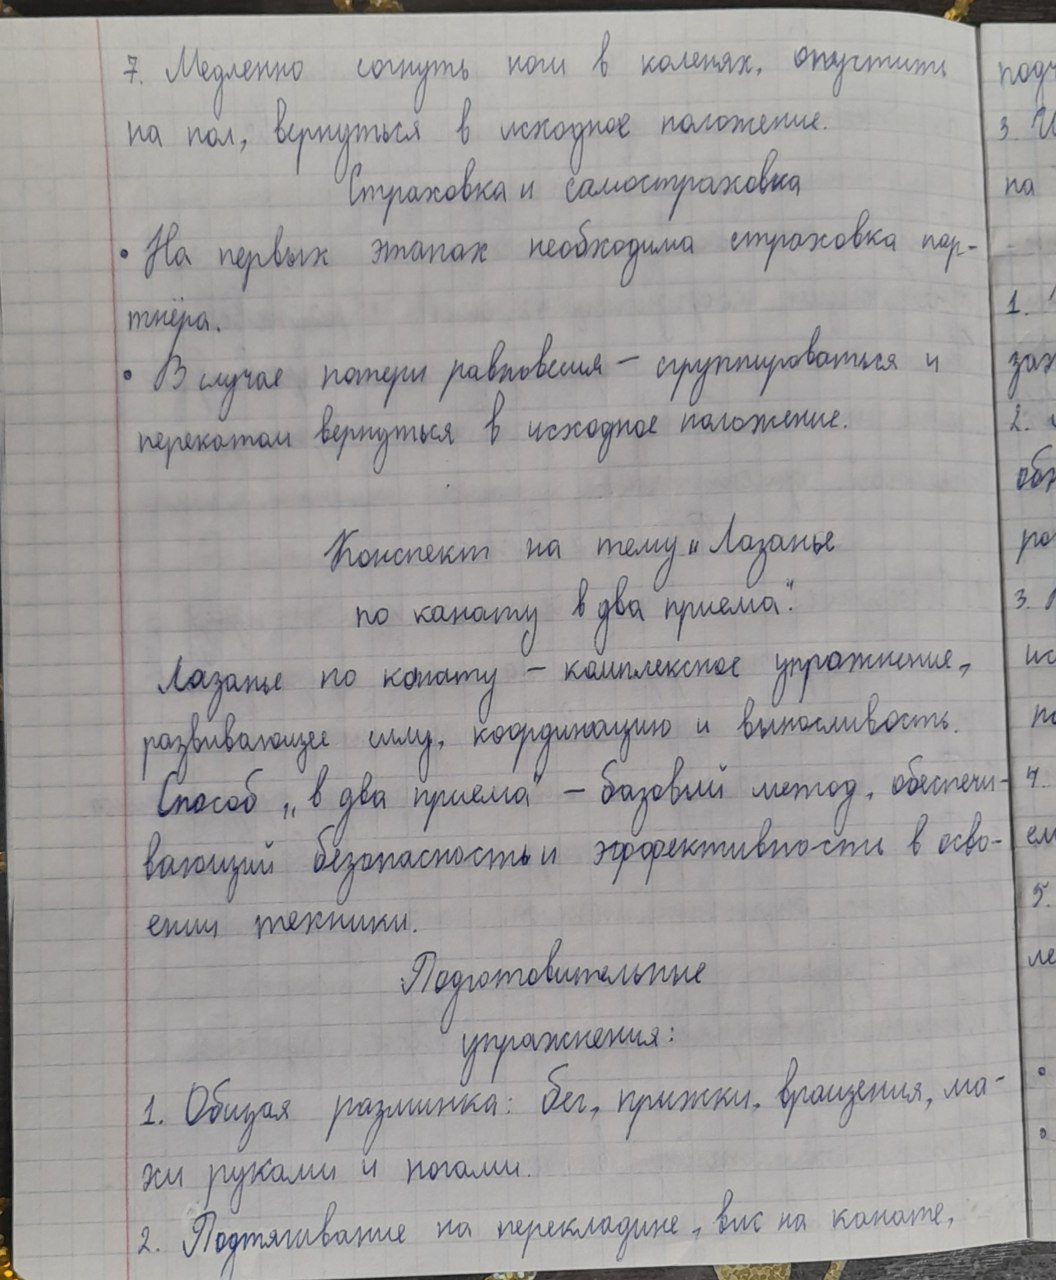 7. Медленно согнуть ноги в коленях, опустить
на пол, вернуться в исходное положение.
Страховка и самостраховка
• На первых этапах необходима страховка пар-
тнёра.
• В случае потери равновесия – сгруппироваться и
перекатом вернуться в исходное положение.
Конспект на тему „Лазанье
по канату в два приема“.
Лазанье по канату – комплексное упражнение,
развивающее силу, координацию и выносливость.
Способ „в два приема“ – базовый метод, обеспечи-
вающий безопасность и эффективность в осво-
ении техники.
Подготовительные
упражнения:
1. Общая разминка: бег, прыжки, вращения, ма-
хи руками и ногами.
2. Подтягивание на перекладине, вис на канате,
3.
на
1.
2.
3.
4.
5.